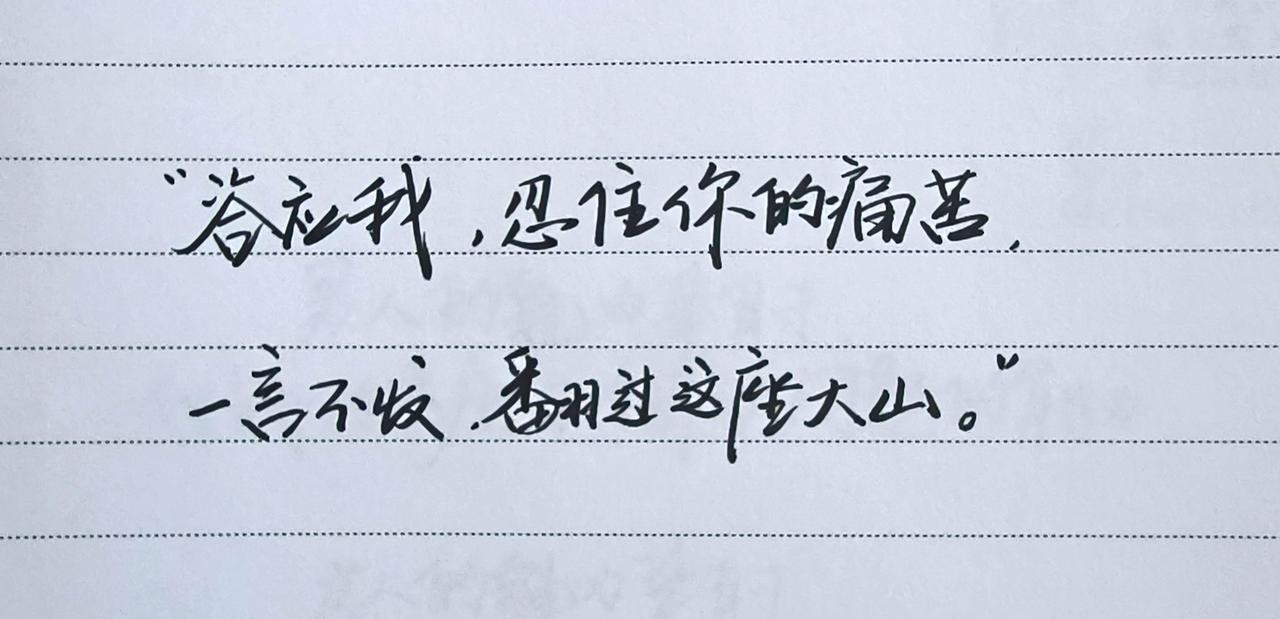 “答应我，忍住你的痛苦，
一言不发，翻过这座大山。”